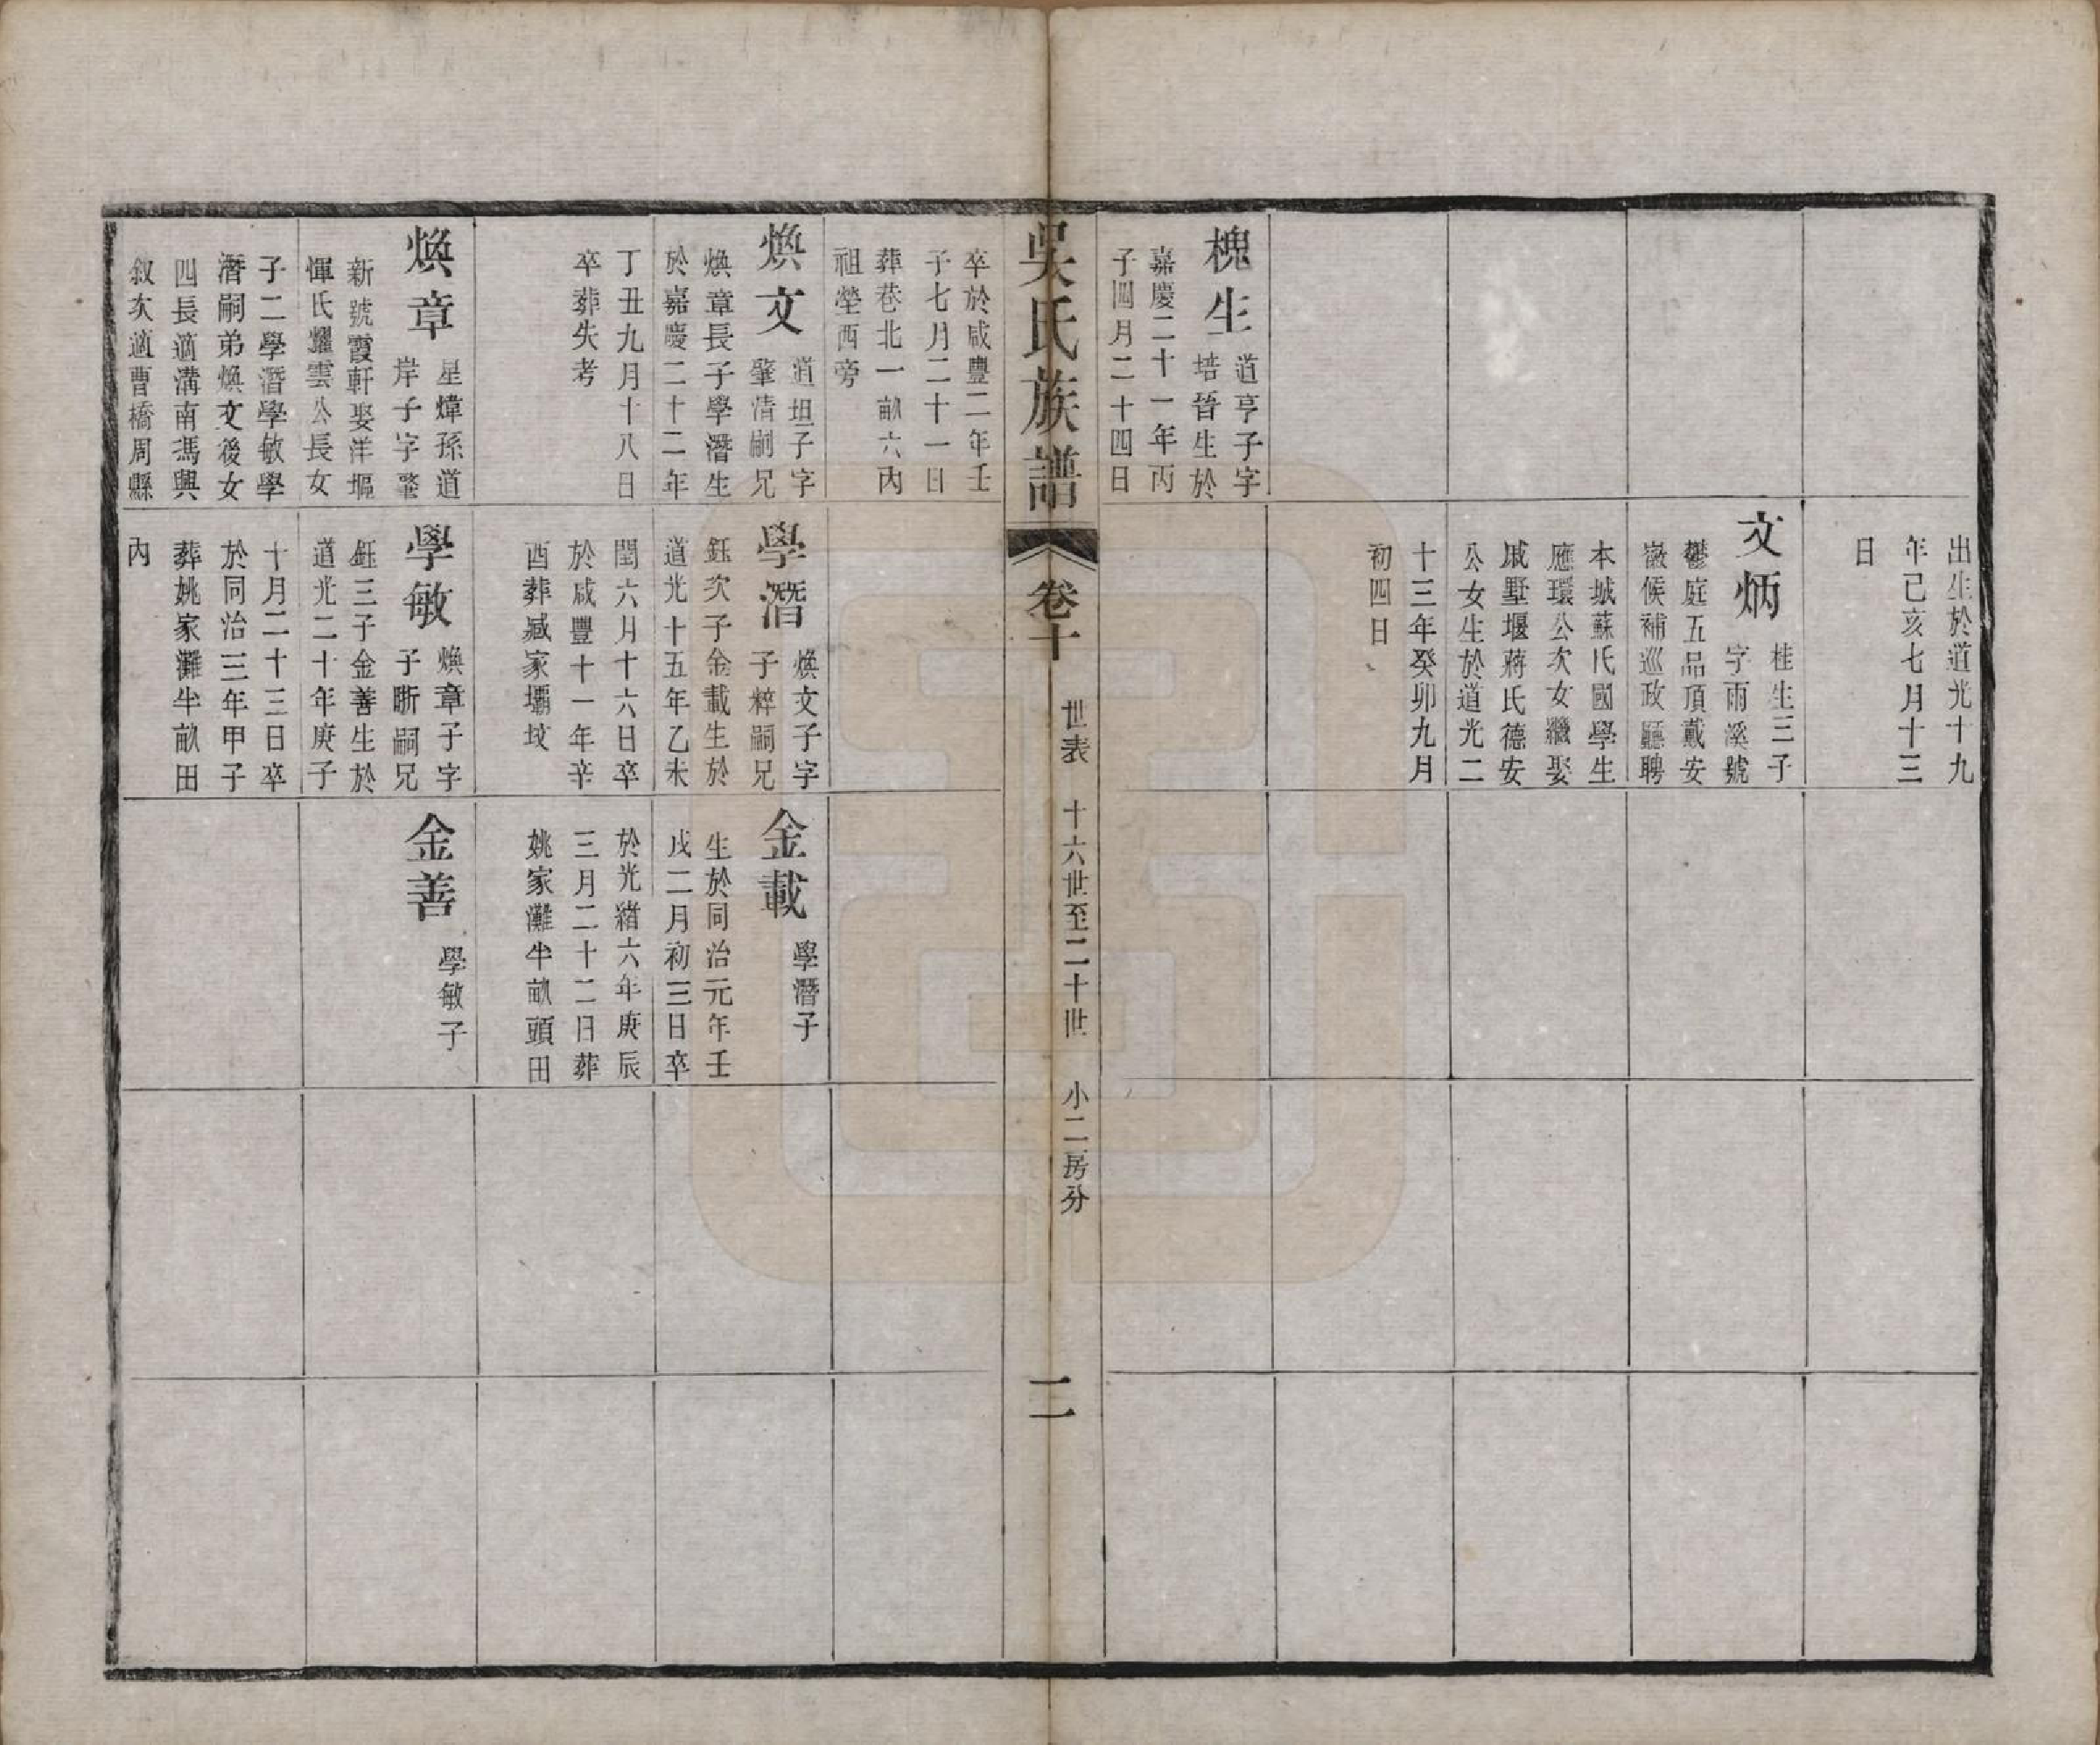 出生於道光十九
年己亥七月十三
日
文炳
桂生三子
字雨溪號
鬱庭五品頂戴安
徽候補巡政廳聘
本城蘇氏國學生
應環公次女繼娶
戚墅堰蔣氏德安
公女生於道光二
十三年癸卯九月
初四日
槐生
道亨子字
培晉生於
嘉慶二十一年丙
子四月二十四日
吳氏族譜
卷十
世表
十六世至二十世
小二房分
二
卒於咸豐二年壬
子七月二十一日
葬巷北一畝六內
祖塋西旁
煥文
道坦子字
肇清嗣兄
煥章長子學潛生
於嘉慶二十二年
丁丑九月十八日
卒葬失考
煥章
星煒孫道
岸子字肇
新號霞軒娶洋塸
惲氏耀雲公長女
子二學潛學敏學
潛嗣弟煥文後女
四長適溝南馮興
叙次適曹橋周縣
學潛
煥文子字
子粹嗣兄
鈺次子金載生於
道光十五年乙未
閏六月十六日卒
於咸豐十一年辛
酉葬臧家壩坟
學敏
煥章子字
子晣嗣兄
鈺三子金善生於
道光二十年庚子
十月二十三日卒
於同治三年甲子
葬姚家灘半畝田
內
金載
學潛子
生於同治元年壬
戌二月初三日卒
於光緒六年庚辰
三月二十二日葬
姚家灘半畝頭田
金善
學敏子